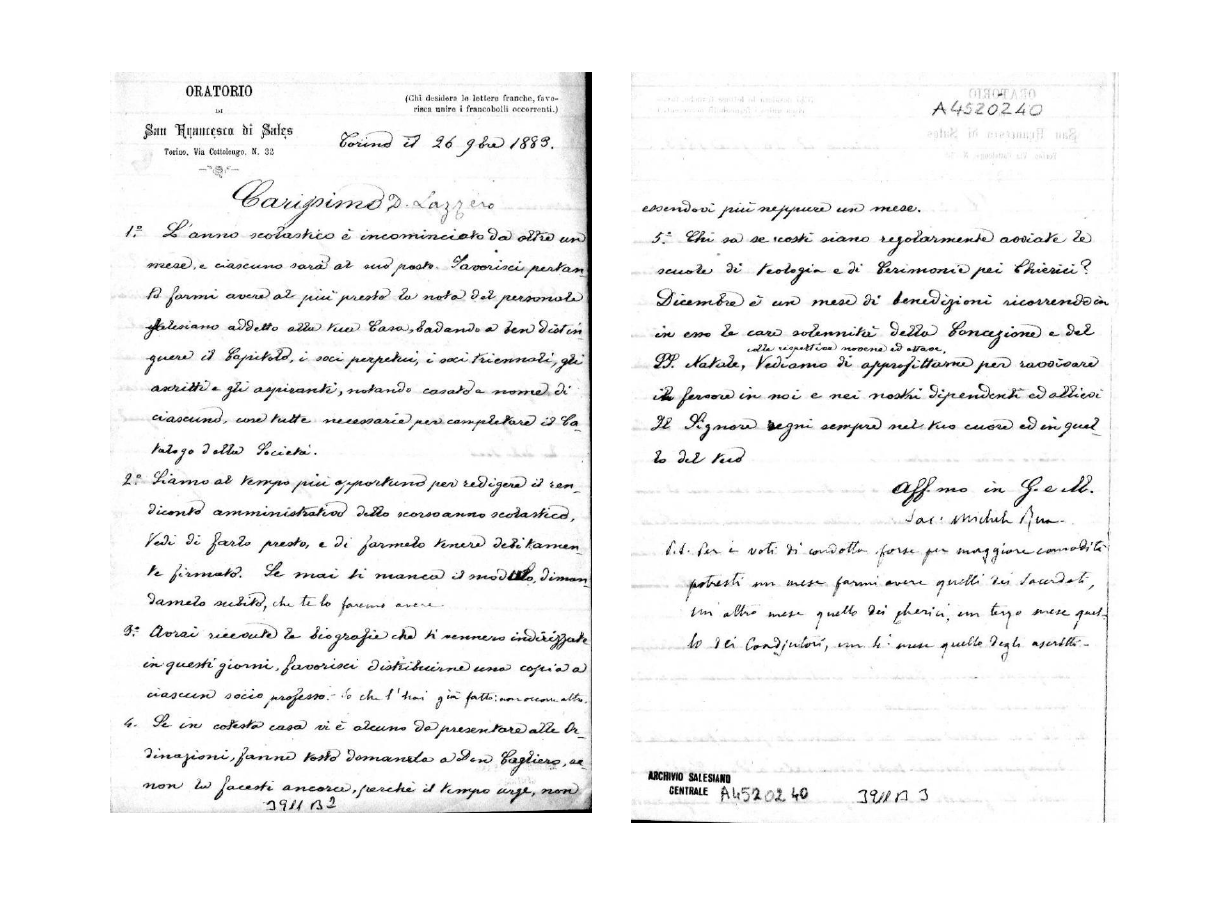 ORATORIO
DI
San Francesco di Sales
Torino, Via Cottolengo, N. 32
(Chi desidera le lettere franche, favo-
risca unire i francobolli occorrenti.)
Torino il 26 9bre 1883.
Carissimo D. Lazzero
1.° L'anno scolastico è incominciato da oltre un
mese, e ciascuno sarà al suo posto. Favorisci pertan-
to farmi avere al più presto la nota del personale
Salesiano addetto alla tua Casa, badando a ben distin
guere il Capitolo, i soci perpetui, i soci triennali, gli
ascritti e gli aspiranti, notando casato e nome di
ciascuno, cose tutte necessarie per completare il Ca-
talogo della Società.
2.° Siamo al tempo più opportuno per redigere il ren-
diconto amministrativo dello scorso anno scolastico,
Vedi di farlo presto, e di farmelo tenere debitamen-
te firmato. Se mai ti manca il modulo, diman
damelo subito, che te lo faremo avere
3.° Avrai ricevute le biografie che ti vennero indirizzate
in questi giorni, favorisci distribuirne una copia a
ciascun socio professo. - So che l'hai già fatto: non occorre altro.
4. Se in cotesta casa vi è alcuno da presentare alle Or-
dinazioni, fanne tosto domanda a Don Cagliero, se
non lo facesti ancora, perchè il tempo urge, non
3911 B 2
A4520240
essendovi più neppure un mese.
5.° Chi sa se costì siano regolarmente avviate le
scuole di teologia e di Cerimonie pei Chierici?
Dicembre è un mese di benedizioni ricorrendo in
in esso le care solennità della Concezione e del
colle rispettive novene ed ottave,
SS. Natale, Vediamo di approfittarne per ravvivare
il fervore in noi e nei nostri dipendenti ed allievi
Il Signore regni sempre nel tuo cuore ed in quel-
lo del tuo
Aff.mo in G. e M.
Sac. Michele Rua
P.S. Per i voti di condotta forse per maggiore comodità
potresti un mese farmi avere quelli dei Sacerdoti,
un altro mese quello dei chierici, un terzo mese quel-
lo dei Coadjutori, un 4° mese quello degli ascritti -
ARCHIVIO SALESIANO
CENTRALE A4520240
3911 B 3